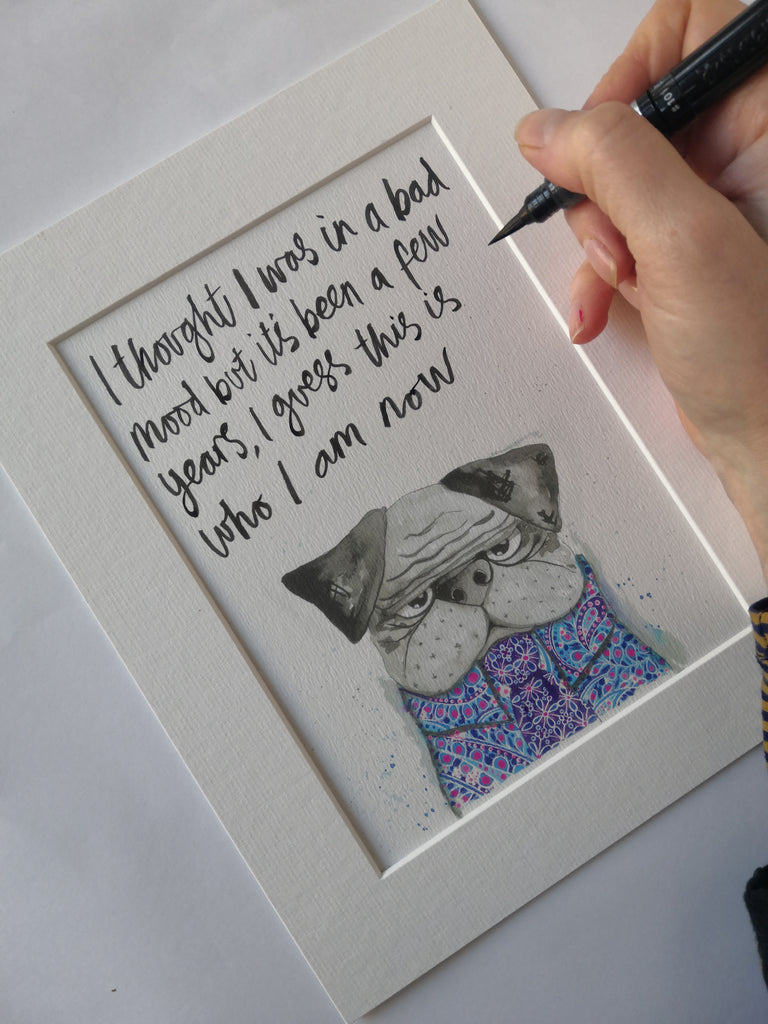 I thought I was in a bad
mood but it's been a few
years, I guess this is
who I am now